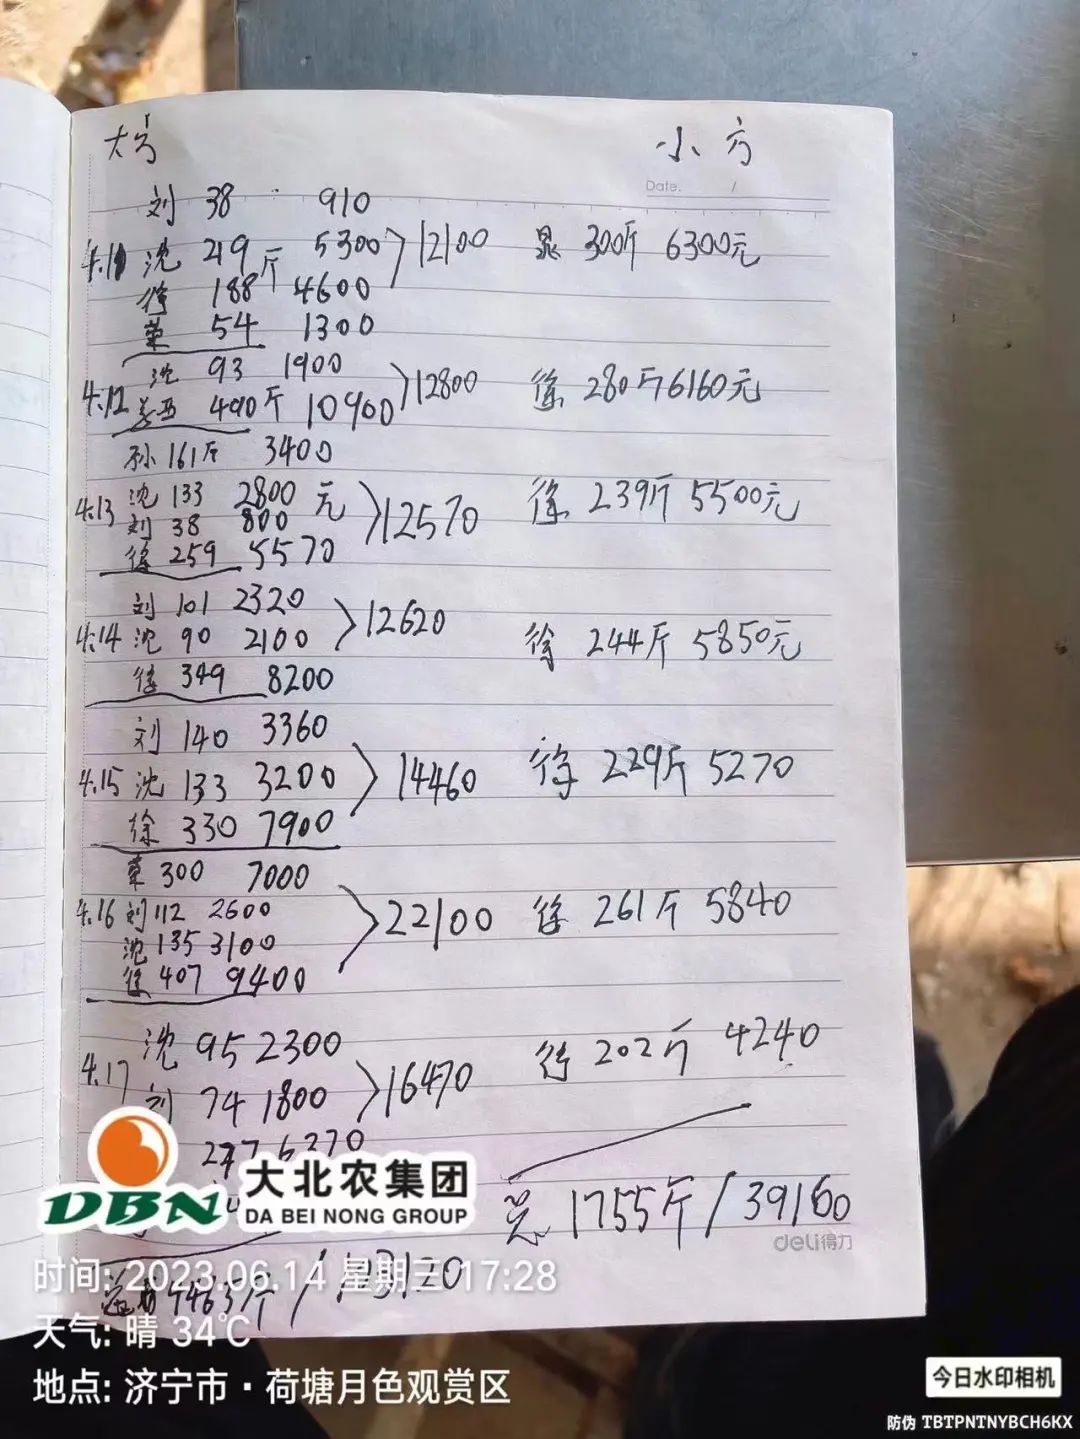 大方 小方
Date. /
刘 38 910
4.10 沈 219斤 5300 12100 晁 300斤 6300元
徐 188 4600
菜 54 1300
沈 93 1900
4.12 490斤 10900 12800 徐 280斤6160元
孙 161斤 3400
4.13 沈 133 2800元 12570 徐 239斤 5500元
刘 38 800
徐 259 5570
刘 101 2320
4.14 沈 90 2100 12620 徐 244斤 5850元
徐 349 8200
刘 140 3360
4.15 沈 133 3200 14460 徐 229斤 5270
徐 330 7900
菜 300 7000
4.16 刘 112 2600 22100 徐 261斤 5840
沈 135 3100
徐 407 9400
沈 95 2300 徐 202斤 4240
4.17 刘 74 1800 16470
277 6370
总 1755斤/39160
deli得力
斤/ 03120
DBN 大北农集团
DA BEI NONG GROUP
时间: 2023.06.14 星期三 17:28
天气: 晴 34℃
地点: 济宁市·荷塘月色观赏区
今日水印相机
防伪 TBTPNTNYBCH6KX